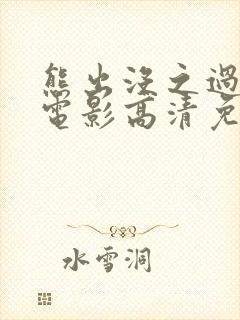 熊出没之过
电影高清免
水雪洞